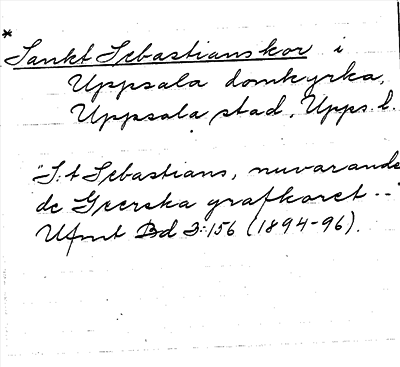 *
Sankt Sebastianskor i
Uppsala domkyrka,
Uppsala stad, Upps. l.
"S:t Sebastians, nuvarande
de Geerska grafkoret --"
Ufmt Bd 3:156 (1894-96).